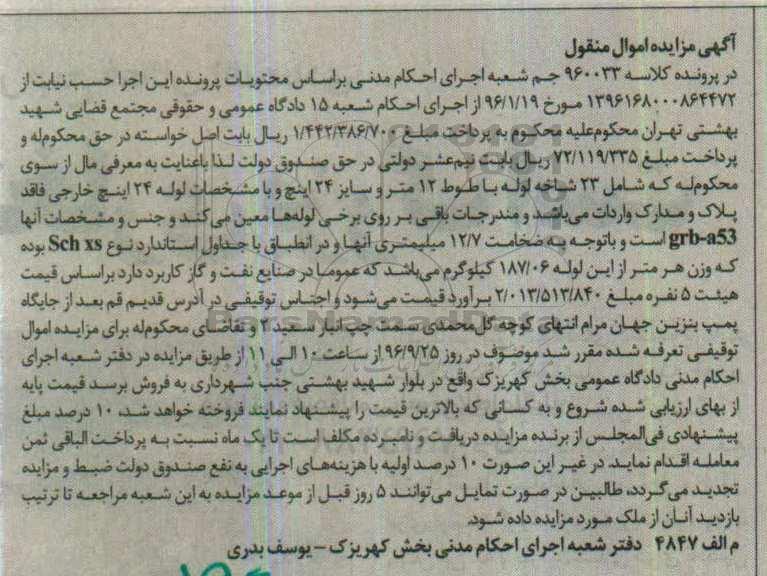 آگهی مزایده اموال منقول
در پرونده کلاسه ۹۶۰۰۳۳ جم شعبه اجرای احکام مدنی براساس محتویات پرونده این اجرا حسب نیابت از
۱۳۹۶۱۶۸۰۰۰۸۶۴۴۷۲ مورخ ۹۶/۱/۱۹ از اجرای احکام شعبه ۱۵ دادگاه عمومی و حقوقی مجتمع قضایی شهید
بهشتی تهران محکوم‌علیه محکوم به پرداخت مبلغ ۱/۴۴۲/۳۸۶/۷۰۰ ریال بابت اصل خواسته در حق محکوم‌له و
پرداخت مبلغ ۷۲/۱۱۹/۳۳۵ ریال بابت نیم‌عشر دولتی در حق صندوق دولت لذا باعنایت به معرفی مال از سوی
محکوم‌له که شامل ۲۳ شاخه لوله با طوط ۱۲ متر و سایز ۲۴ اینچ و با مشخصات لوله ۲۴ اینچ خارجی فاقد
پلاک و مدارک واردات می‌باشد و مندرجات باقی بر روی برخی لوله‌ها معین می‌کند و جنس و مشخصات آنها
grb-a53 است و باتوجه به ضخامت ۱۲/۷ میلیمتری آنها و در انطباق با جداول استاندارد نوع Sch xs بوده
که وزن هر متر از این لوله ۱۸۷/۰۶ کیلوگرم می‌باشد که عموما در صنایع نفت و گاز کاربرد دارد براساس قیمت
هیئت ۵ نفره مبلغ ۲/۰۱۳/۵۱۳/۸۴۰ برآورد قیمت می‌شود و اجناس توقیفی در آدرس قدیم قم بعد از جایگاه
پمپ بنزین جهان مرام انتهای کوچه گل‌محمدی سمت چپ انبار سعید ۲ و تقاضای محکوم‌له برای مزایده اموال
توقیفی تعرفه شده مقرر شد موضوف در روز ۹۶/۹/۲۵ از ساعت ۱۰ الی ۱۱ از طریق مزایده در دفتر شعبه اجرای
احکام مدنی دادگاه عمومی بخش کهریزک واقع در بلوار شهید بهشتی جنب شهرداری به فروش برسد قیمت پایه
از بهای ارزیابی شده شروع و به کسانی که بالاترین قیمت را پیشنهاد نمایند فروخته خواهد شد، ۱۰ درصد مبلغ
پیشنهادی فی‌المجلس از برنده مزایده دریافت و نامبرده مکلف است تا یک ماه نسبت به پرداخت الباقی ثمن
معامله اقدام نماید. در غیر این صورت ۱۰ درصد اولیه با هزینه‌های اجرایی به نفع صندوق دولت ضبط و مزایده
تجدید می‌گردد، طالبین در صورت تمایل می‌توانند ۵ روز قبل از موعد مزایده به این شعبه مراجعه تا ترتیب
بازدید آنان از ملک مورد مزایده داده شود.
م الف ۴۸۴۷ دفتر شعبه اجرای احکام مدنی بخش کهریزک – یوسف بدری